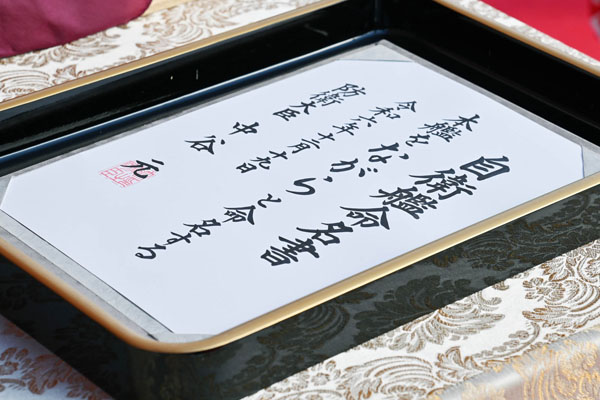 自衛艦命名書
本艦を ながら と 命名する
令和六年十二月十九日
防衛大臣 中谷 元